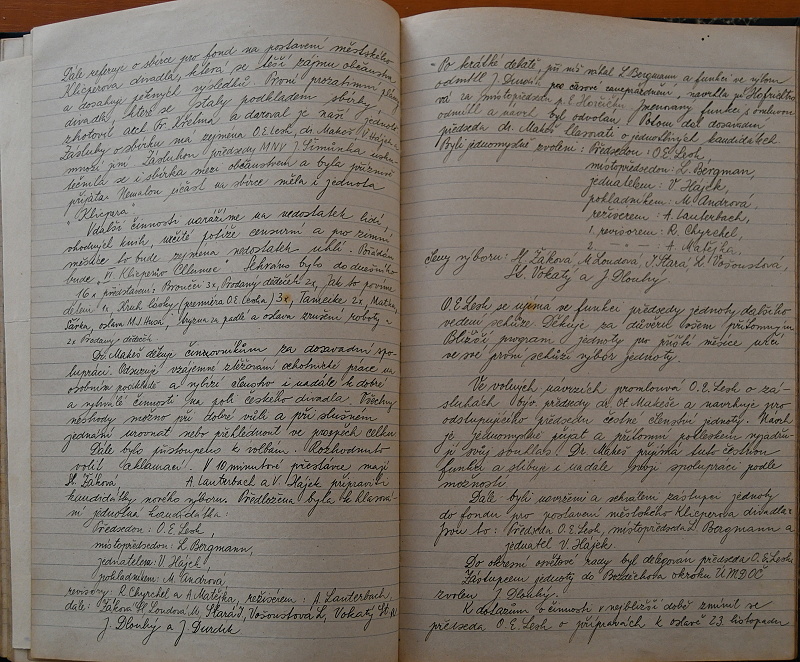 Dále referuje o sbírce pro fond na postavení městského
Klicperova divadla, která se těší zájmu občanstva
a dosahuje pěkných výsledků. První prozatimní plány
divadla, které se staly podkladem sbírky,
zhotovil arch. Fr. Křelina a daroval je naší jednotě.
Zásluhy o sbírku má zejména O.E. Lesh, dr. Makeš V. Hájek a
mnozí jiní. Zásluhou předsedy MNV J. Šimůnka usku-
tečnila se i sbírka mezi občanstvem a byla příznivě
přijata. Nemalou účast na sbírce měla i jednota
"Klicpera"
V další činnosti naráží me na nedostatek lidí,
vhodných knih, určité potíže censurní a pro zimní
měsíce to bude zejména nedostatek uhlí. Pořádán
bude "VI Klicperův Chlumec". Sehráno bylo do dnešního
16 představení: Broučci 3x, Prodaný dědeček 2x, Jak se povíme
dělení 1x Kruh lásky (premiéra O.E. Lesha) 3x,
Šárka, oslava M.J. Husa, tryzna za padlé a oslava zrušení roboty a
2x Prodaný dědeček
Dr. Makeš děkuje činovníkům za dosavadní spo-
lupráci. Odsuzuje vzájemné ztěžování ochotnické práce na
osobním podkladě a vybízí členstvo i nadále k dobré
a vytrvalé činnosti na poli českého divadla. Všechny
neshody možno při dobré vůli a při slušném
jednání urovnat nebo přehlédnout ve prospěch celku
Dále bylo přistoupeno k volbám. Rozhodnuto
volit aklamací. V 10 minutové přestávce mají
Sl. Žáková A. Lauterbach a V. Hájek připraviti
kandidátky nového výboru. Předložena byla ke hlasová-
ní jednotná kandidátka:
Předsedou: O.E. Lesh,
místopředsedou: L. Bergmann,
jednatelem: V. Hájek,
pokladníkem: M. Andrová,
revisory: R. Chyrchel a A. Matějka, režisérem: A. Lauterbach,
dále: Žáková Sl. Loudová M., Stará J., Vošoustová L, Vokatý St.
J. Dlouhý a J. Durdík
Po krátké debatě, při níž vzdal L. Bergmann a funkci ve výboru
odmítl J. Durdík pro časové zaneprázdnění, navrhla pí Hofrichtro
vá za místopředsedu p. E. Horčičku. Jmenovaný funkci s omluvou
odmítl a návrh byl odvolán. Potom dal dosavadní
předseda dr. Makeš hlasovati o jednotlivých kandidátech
Byli jednomyslně zvoleni: Předsedou: O.E. Lesh,
místopředsedou: L. Bergman,
jednatelem: V. Hájek,
pokladníkem: M. Andrová,
režisérem: A. Lauterbach,
1. revisorem: R. Chyrchel,
2. — " — A. Matějka,
členy výboru: Sl. Žáková, M. Loudová, J. Stará, L. Vošoustová,
St. Vokatý a J. Dlouhý
O.E. Lesh se ujímá ve funkci předsedy jednoty dalšího
vedení schůze. Děkuje za důvěru všem přítomným
Bližší program jednoty na příští měsíce určí
ve své první schůzi výbor jednoty.
Ve volných návrzích promlouvá O.E. Lesh o zá-
sluhách býv. předsedy dr. Ot. Makeše a navrhuje pro
odstupujícího předsedu čestné členství jednoty. Návrh
je jednomyslně přijat a přítomní potleskem vyjadřu-
jí svůj souhlas. Dr. Makeš přijímá tuto čestnou
funkci a slibuje i nadále svoji spolupráci podle
možností.
Dále byli navrženi a schváleni zástupci jednoty
do fondu pro postavení městského Klicperova divadla:
Jsou to: Předseda O.E. Lesh, místopředseda L. Bergmann a
jednatel V. Hájek
Do okresní osvětové rady byl delegován předseda O.E. Lesh
Zástupcem jednoty do Bozděchova okrsku ÚMDOČ
zvolen J. Dlouhý.
K dotazům o činnosti v nejbližší době zmínil se
předseda O.E. Lesh o přípravách k oslavě 23. listopadu